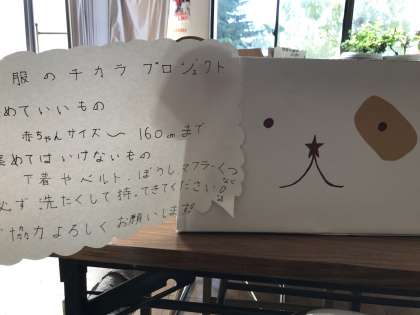 服のチカラプロジェクト
めていいもの
赤ちゃんサイズ〜160cmまで
集めてはいけないもの
下着やベルト、ぼうし、マフラー、くつなど
必ず洗たくして持ってきてください。
協力よろしくお願いします